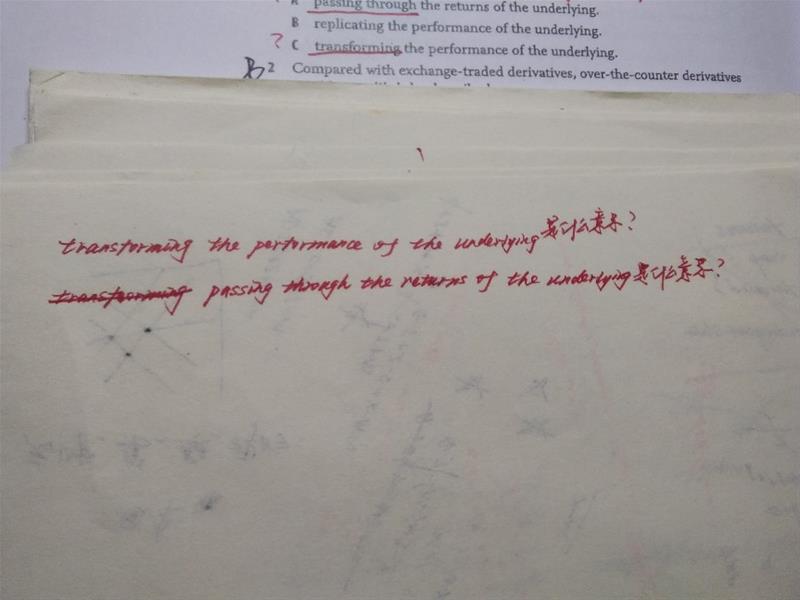 A passing through the returns of the underlying.
B replicating the performance of the underlying.
? C transforming the performance of the underlying.
B 2 Compared with exchange-traded derivatives, over-the-counter derivatives
transforming the performance of the underlying是什么意思?
transforming passing through the returns of the underlying是什么意思?